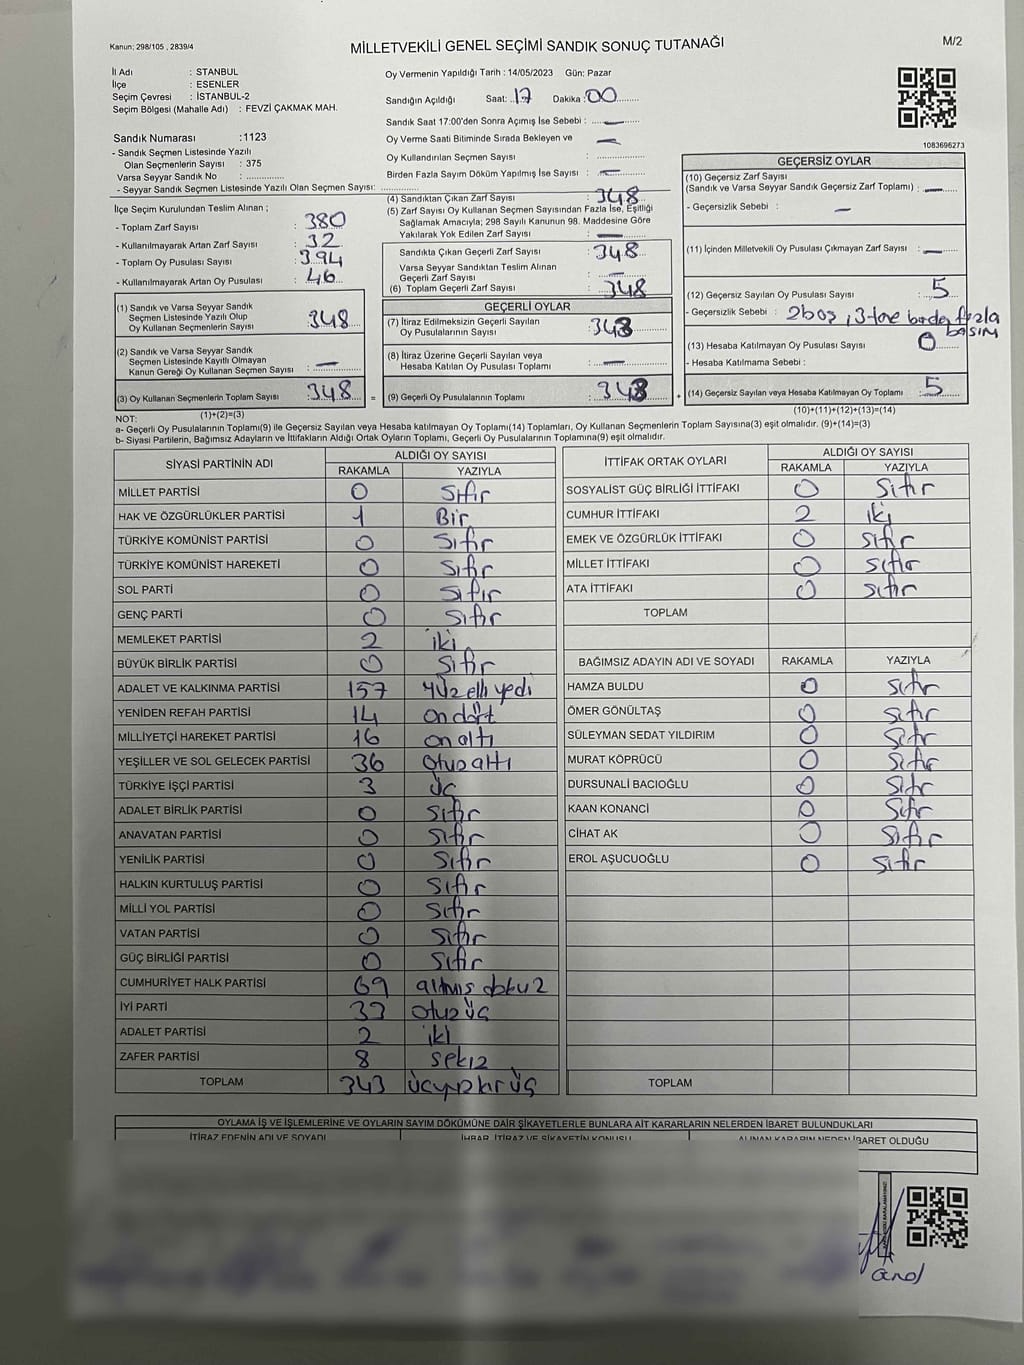 Kanun; 298/105 , 2839/4
MİLLETVEKİLİ GENEL SEÇİMİ SANDIK SONUÇ TUTANAĞI
M/2
İl Adı : STANBUL
İlçe : ESENLER
Seçim Çevresi : İSTANBUL-2
Seçim Bölgesi (Mahalle Adı) : FEVZİ ÇAKMAK MAH.
Sandık Numarası :1123
- Sandık Seçmen Listesinde Yazılı
Olan Seçmenlerin Sayısı : 375
Varsa Seyyar Sandık No : ..............
- Seyyar Sandık Seçmen Listesinde Yazılı Olan Seçmen Sayısı: ..............
Oy Vermenin Yapıldığı Tarih : 14/05/2023 Gün: Pazar
Sandığın Açıldığı Saat: 17 Dakika : 00
Sandık Saat 17:00'den Sonra Açımış İse Sebebi : —
Oy Verme Saati Bitiminde Sırada Bekleyen ve —
Oy Kullandırılan Seçmen Sayısı :
Birden Fazla Sayım Döküm Yapılmış İse Sayısı : —
1083696273
İlçe Seçim Kurulundan Teslim Alınan ;
- Toplam Zarf Sayısı : 380
- Kullanılmayarak Artan Zarf Sayısı : 32
- Toplam Oy Pusulası Sayısı : 394
- Kullanılmayarak Artan Oy Pusulası : 46
(1) Sandık ve Varsa Seyyar Sandık
Seçmen Listesinde Yazılı Olup
Oy Kullanan Seçmenlerin Sayısı : 348
(2) Sandık ve Varsa Seyyar Sandık
Seçmen Listesinde Kayıtlı Olmayan
Kanun Gereği Oy Kullanan Seçmen Sayısı : —
(3) Oy Kullanan Seçmenlerin Toplam Sayısı : 348 =
(1)+(2)=(3)
(4) Sandıktan Çıkan Zarf Sayısı : 348
(5) Zarf Sayısı Oy Kullanan Seçmen Sayısından Fazla İse, Eşitliği
Sağlamak Amacıyla; 298 Sayılı Kanunun 98. Maddesine Göre
Yakılarak Yok Edilen Zarf Sayısı : —
Sandıkta Çıkan Geçerli Zarf Sayısı : 348
Varsa Seyyar Sandıktan Teslim Alınan
Geçerli Zarf Sayısı : —
(6) Toplam Geçerli Zarf Sayısı : 348
GEÇERLİ OYLAR
(7) İtiraz Edilmeksizin Geçerli Sayılan
Oy Pusulalarının Sayısı : 343
(8) İtiraz Üzerine Geçerli Sayılan veya
Hesaba Katılan Oy Pusulası Toplamı : —
(9) Geçerli Oy Pusulalarının Toplamı : 343 +
GEÇERSİZ OYLAR
(10) Geçersiz Zarf Sayısı
(Sandık ve Varsa Seyyar Sandık Geçersiz Zarf Toplamı) : —
- Geçersizlik Sebebi : —
(11) İçinden Milletvekili Oy Pusulası Çıkmayan Zarf Sayısı : —
(12) Geçersiz Sayılan Oy Pusulası Sayısı : 5
- Geçersizlik Sebebi : 2 boş , 3 tane birden fazla
basım
(13) Hesaba Katılmayan Oy Pusulası Sayısı : 0
- Hesaba Katılmama Sebebi :
(14) Geçersiz Sayılan veya Hesaba Katılmayan Oy Toplamı : 5
(10)+(11)+(12)+(13)=(14)
NOT:
a- Geçerli Oy Pusulalarının Toplamı(9) ile Geçersiz Sayılan veya Hesaba katılmayan Oy Toplamı(14) Toplamları, Oy Kullanan Seçmenlerin Toplam Sayısına(3) eşit olmalıdır. (9)+(14)=(3)
b- Siyasi Partilerin, Bağımsız Adayların ve İttifakların Aldığı Ortak Oyların Toplamı, Geçerli Oy Pusulalarının Toplamına(9) eşit olmalıdır.
SİYASİ PARTİNİN ADI ALDIĞI OY SAYISI
RAKAMLA YAZIYLA
MİLLET PARTİSİ 0 Sıfır
HAK VE ÖZGÜRLÜKLER PARTİSİ 1 Bir
TÜRKİYE KOMÜNİST PARTİSİ 0 Sıfır
TÜRKİYE KOMÜNİST HAREKETİ 0 Sıfır
SOL PARTİ 0 Sıfır
GENÇ PARTİ 0 Sıfır
MEMLEKET PARTİSİ 2 iki
BÜYÜK BİRLİK PARTİSİ 0 Sıfır
ADALET VE KALKINMA PARTİSİ 157 Yüz elli yedi
YENİDEN REFAH PARTİSİ 14 on dört
MİLLİYETÇİ HAREKET PARTİSİ 16 on altı
YEŞİLLER VE SOL GELECEK PARTİSİ 36 otuz altı
TÜRKİYE İŞÇİ PARTİSİ 3 üç
ADALET BİRLİK PARTİSİ 0 Sıfır
ANAVATAN PARTİSİ 0 Sıfır
YENİLİK PARTİSİ 0 Sıfır
HALKIN KURTULUŞ PARTİSİ 0 Sıfır
MİLLİ YOL PARTİSİ 0 Sıfır
VATAN PARTİSİ 0 Sıfır
GÜÇ BİRLİĞİ PARTİSİ 0 Sıfır
CUMHURİYET HALK PARTİSİ 69 altmış dokuz
İYİ PARTİ 33 otuz üç
ADALET PARTİSİ 2 iki
ZAFER PARTİSİ 8 sekiz
TOPLAM 343 üçyüzkırk üç
İTTİFAK ORTAK OYLARI ALDIĞI OY SAYISI
RAKAMLA YAZIYLA
SOSYALİST GÜÇ BİRLİĞİ İTTİFAKI 0 Sıfır
CUMHUR İTTİFAKI 2 iki
EMEK VE ÖZGÜRLÜK İTTİFAKI 0 Sıfır
MİLLET İTTİFAKI 0 Sıfır
ATA İTTİFAKI 0 Sıfır
TOPLAM
BAĞIMSIZ ADAYIN ADI VE SOYADI RAKAMLA YAZIYLA
HAMZA BULDU 0 Sıfır
ÖMER GÖNÜLTAŞ 0 Sıfır
SÜLEYMAN SEDAT YILDIRIM 0 Sıfır
MURAT KÖPRÜCÜ 0 Sıfır
DURSUNALİ BACIOĞLU 0 Sıfır
KAAN KONANCİ 0 Sıfır
CİHAT AK 0 Sıfır
EROL AŞUCUOĞLU 0 Sıfır
TOPLAM
OYLAMA İŞ VE İŞLEMLERİNE VE OYLARIN SAYIM DÖKÜMÜNE DAİR ŞİKAYETLERLE BUNLARA AİT KARARLARIN NELERDEN İBARET BULUNDUKLARI
İTİRAZ EDENİN ADI VE SOYADI İHBAR, İTİRAZ VE ŞİKAYETİN KONUSU ALINAN KARARIN NEDEN İBARET OLDUĞU